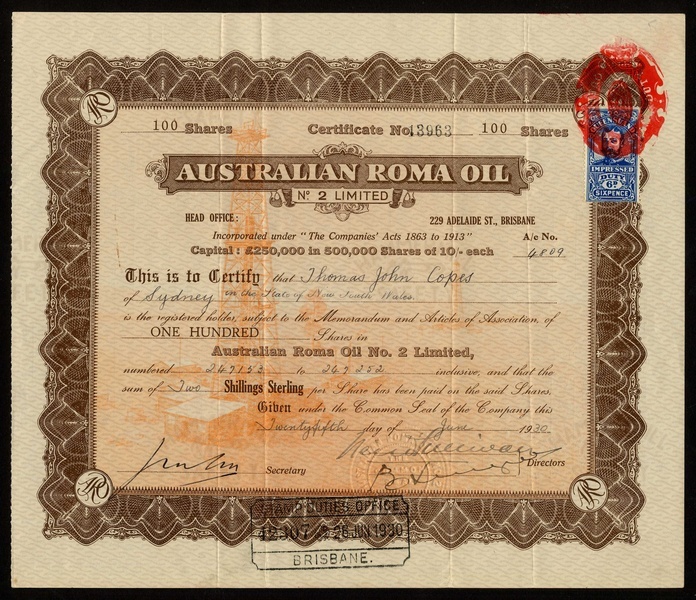 100 Shares Certificate No. 13963 100 Shares
AUSTRALIAN ROMA OIL
No 2 LIMITED
IMPRESSED
DUTY
6D
SIXPENCE
HEAD OFFICE: 229 ADELAIDE ST., BRISBANE
Incorporated under "The Companies' Acts 1863 to 1913" A/c No.
Capital: £250,000 in 500,000 Shares of 10/- each 4809
This is to Certify that Thomas John Copes
of Sydney in the State of New South Wales.
is the registered holder, subject to the Memorandum and Articles of Association, of
ONE HUNDRED Shares in
Australian Roma Oil No. 2 Limited,
numbered 249153 to 249252 inclusive, and that the
sum of Two Shillings Sterling per Share has been paid on the said Shares.
Given under the Common Seal of the Company this
Twentyfifth day of June 1930
Secretary Directors
STAMP DUTIES OFFICE
12307 26 JUN 1930
BRISBANE.